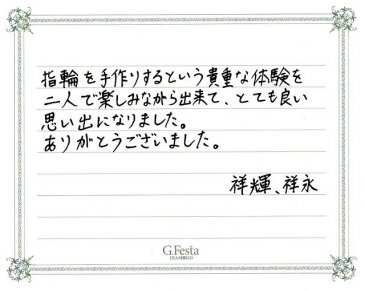 指輪を手作りするという貴重な体験を
二人で楽しみながら出来て、とても良い
思い出になりました。
ありがとうございました。
祥輝、祥永
G.Festa
DIAMOND